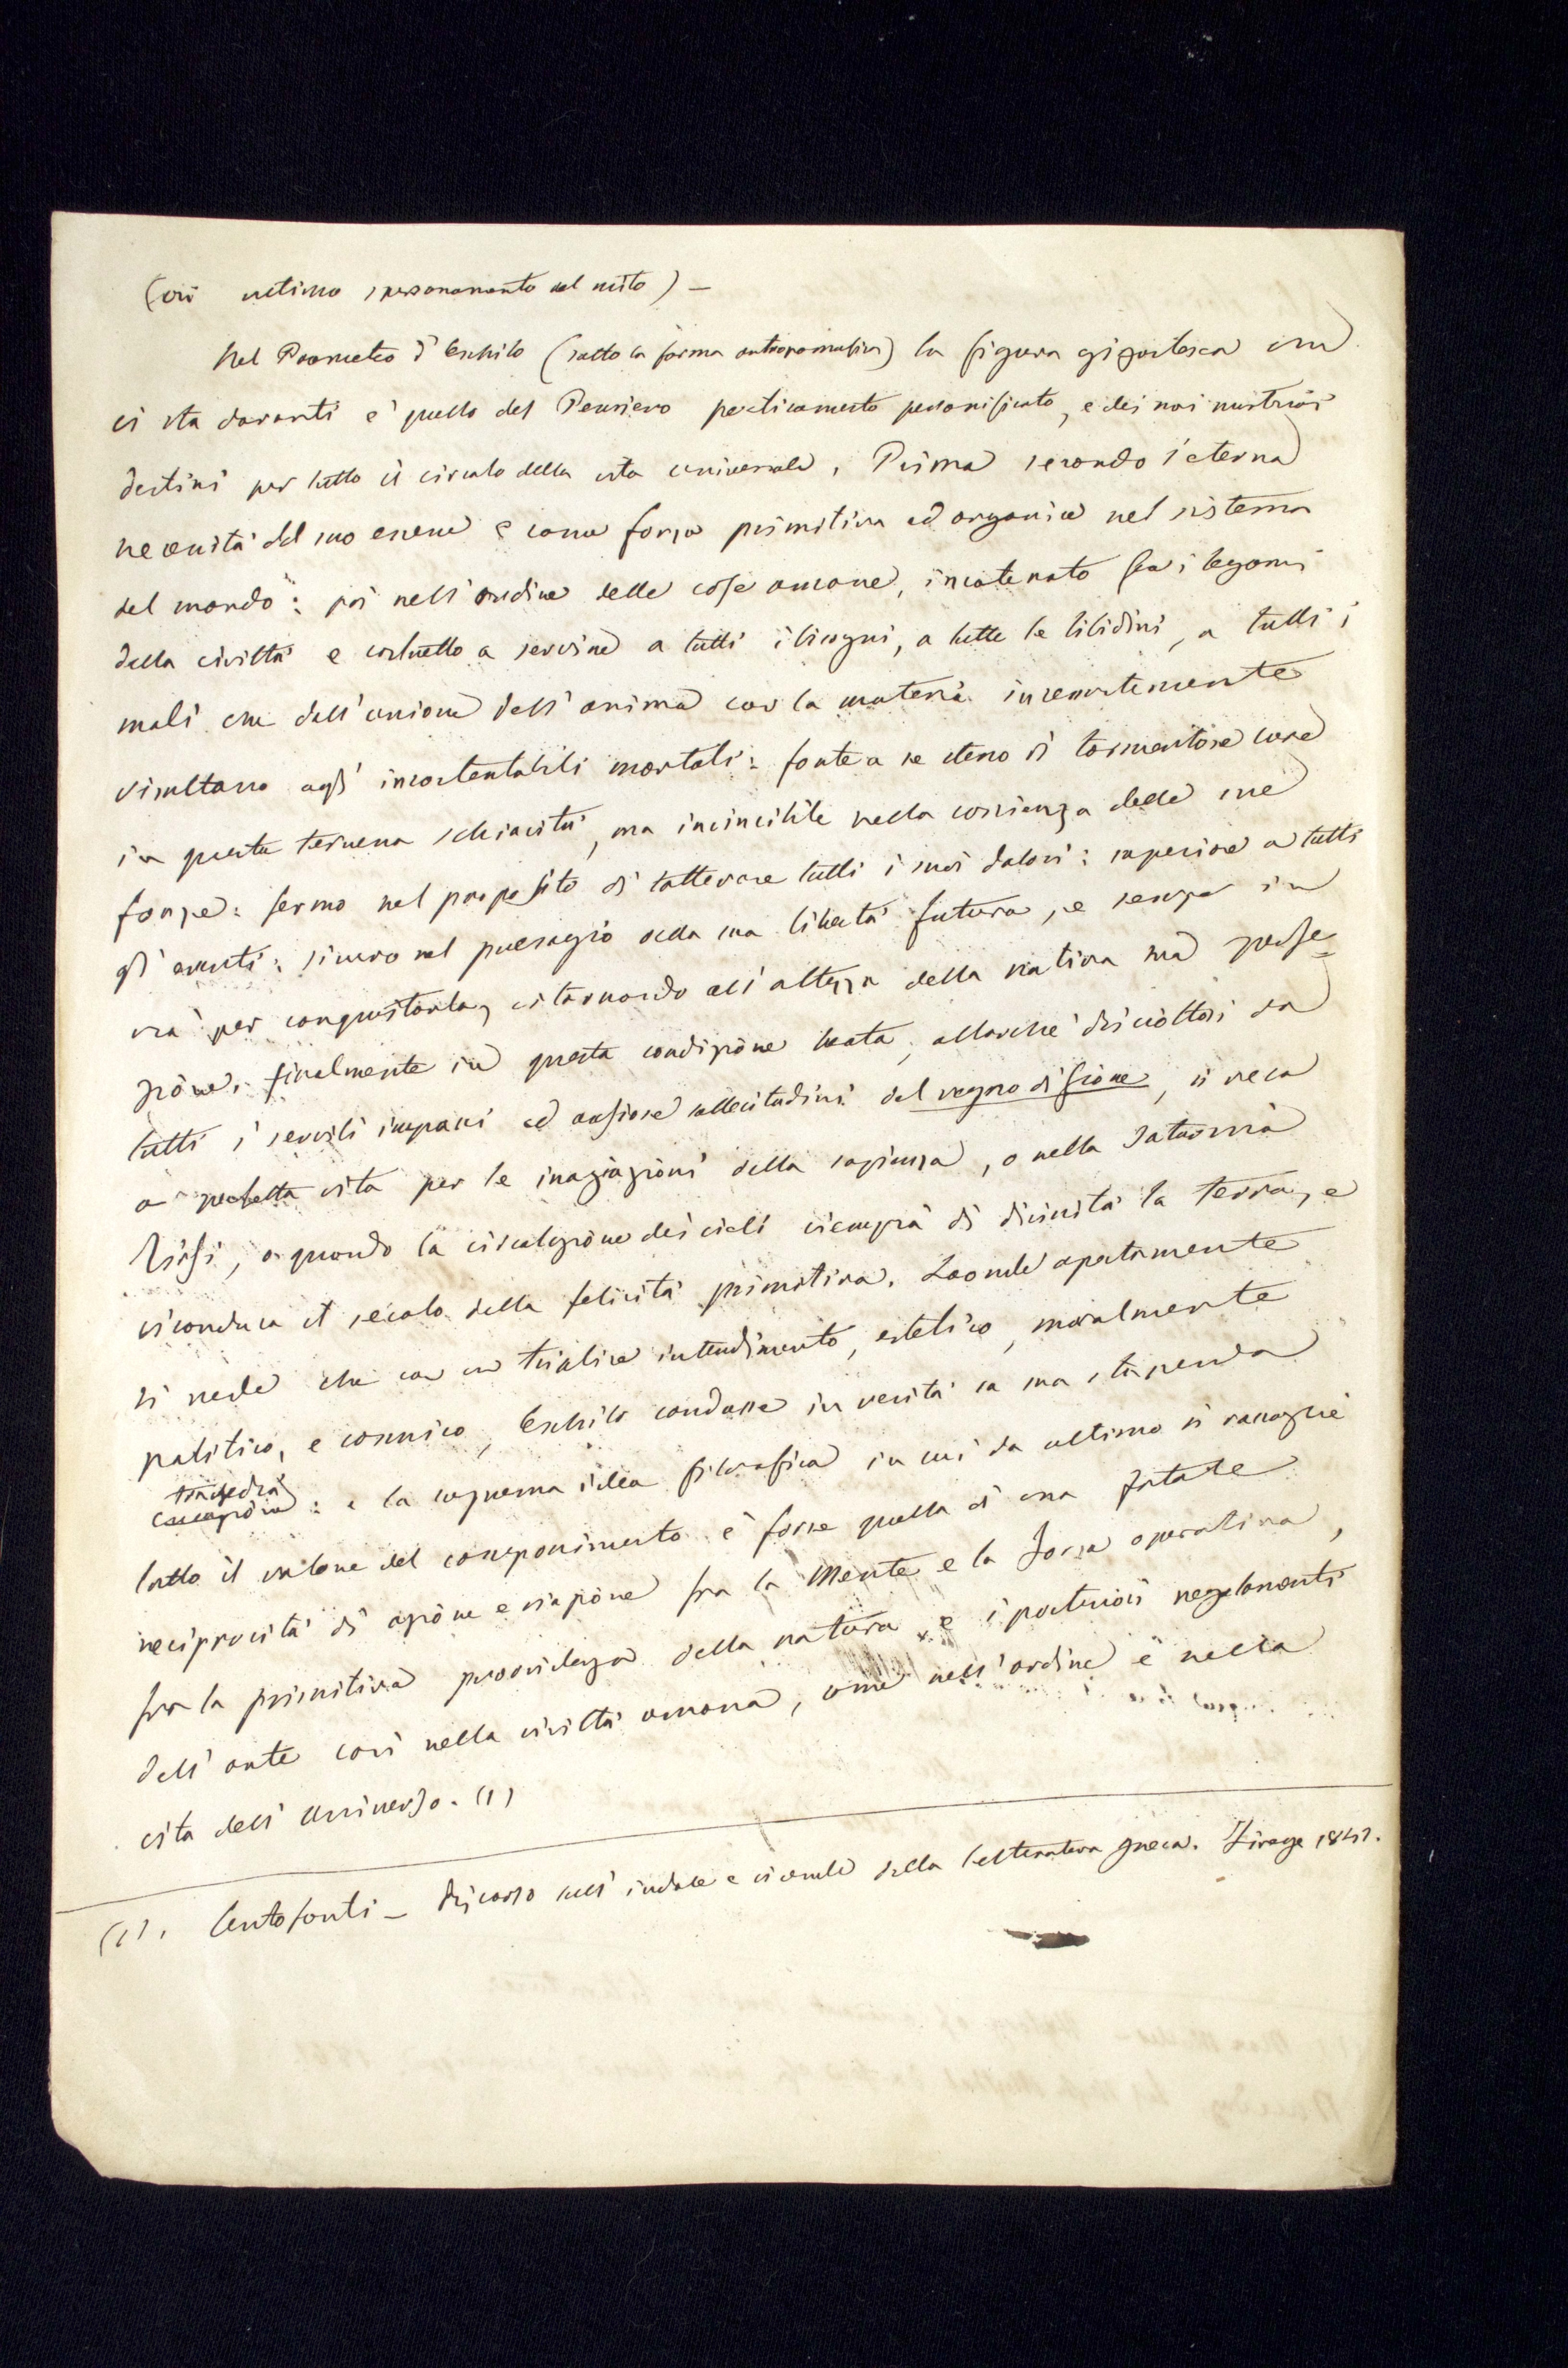 (ori ultimo spersonamento del mito) –
Nel Prometeo d'Eschilo (sotto la forma antropomorfica) la figura gigantesca che
ci sta davanti è quella del Pensiero poeticamente personificato, e dei suoi misteriosi
destini per tutto il circolo della vita universale. Prima secondo l'eterna
necessità del suo essere e come forza primitiva ed organica nel sistema
del mondo: poi nell'ordine delle cose umane, incatenato fra i legami
della civiltà e costretto a servire a tutti i bisogni, a tutte le libidini, a tutti i
mali che dall'unione dell'anima con la materia incessantemente
risultano agl' incontentabili mortali: fonte a se stesso di tormentose cure
in questa terrena schiavitù, ma invincibile nella coscienza delle sue
forze: fermo nel proposito di tollerare tutti i suoi dolori: superiore a tutti
gl' eventi: sicuro nel presagio della sua libertà futura, e senza in
via per conquistarla, ritornando all'altezza della nativa sua perfe=
zione. finalmente in questa condizione beata, allorchè disciòltosi da
tutti i servili impacci ed ansiose sollecitudini del regno di Giove, si reca
a perfetta vita per le iniziazioni della sapienza, o nella Saturnia
Tirsi, o quando la circolazione dei cieli riempia di divinità la terra, e
riconduca il secolo della felicità primitiva. Laonde apertamente
si vede che con un triplice intendimento, estetico, moralmente
politico, e cosmico, Eschilo condusse in verità la sua stupenda
tragedia
: e la suprema idea filosofica in cui da ultimo si raccoglie
tutto il valore del componimento è forse quella di una fatale
reciprocità di azione e riazione fra la Mente e la Forza operativa,
fra la primitiva provvidenza della natura e i posteriori regolamenti
dell'arte così nella civiltà umana, come nell'ordine e nella
vita dell'Universo. (1)
(1). Centofanti – Discorso sull'indole e vicende della letteratura greca. Firenze 1841.